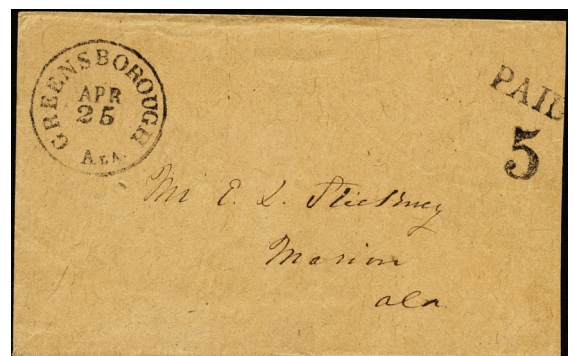 GREENSBOROUGH
APR
25
ALA.
PAID
5
Mr E. L. Stickney
Marion
Ala